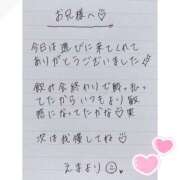 お兄様へ♡
今日は遊びに来てくれて
ありがとうございました
飲み会終わりで酔っ払っ
てたからいつもより敏
感になってたかな♡笑
次は我慢してね♡
えまより